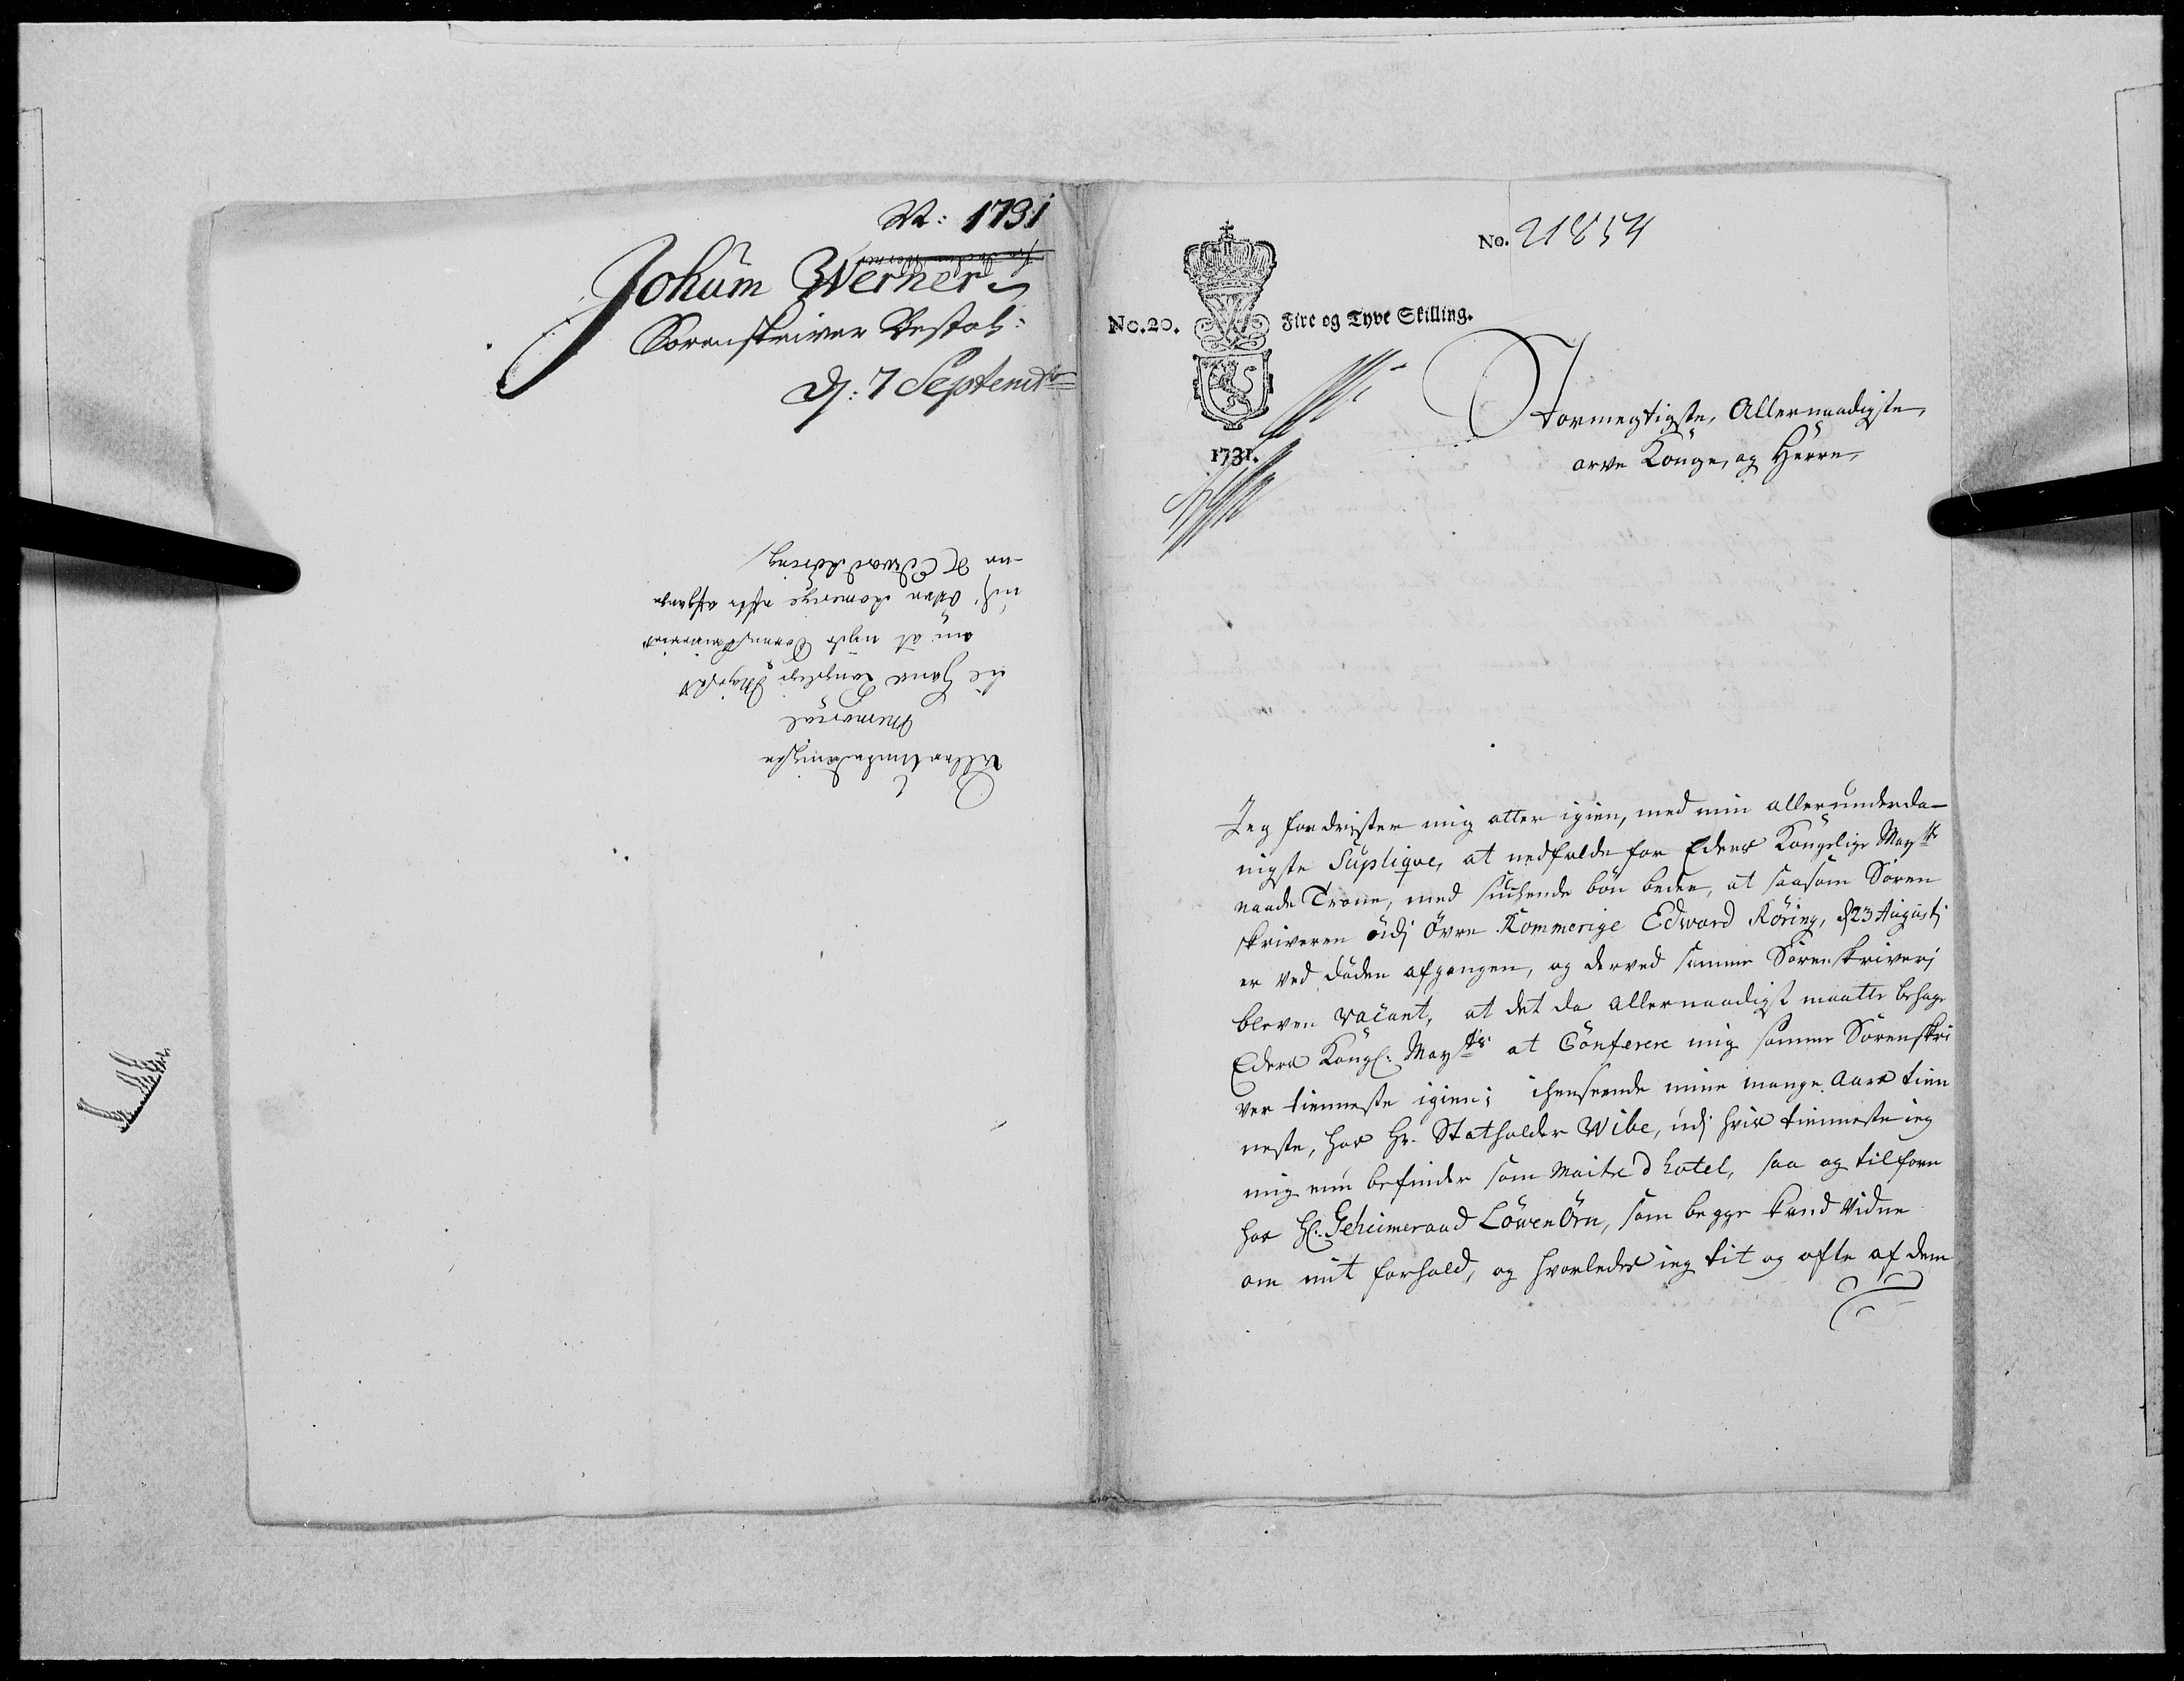 No: 1731
Johum Werner
Sorenskriver Bestal:
D: 7 Septembr
Allerunderdanigste
Memorial
til Hans Kongelige Mayestet
om at nyde Sorenskriveriet
udj Øvre Romerige efter afgangne
Edvard Röring
No. 21854
No. 20.
Fire og Tyve Skilling.
1731.
Stormegtigste, Allernaadigste
arve Konge, og Herre,
Jeg fordrister mig atter igien, med min allerunderda-
nigste Suplique, at nedfalde for Eders Kongelige Mayts
naade Trone, med suchende bön beder, at saasom Soren
skriveren udj Övre Rommerige Edward Röring, d 23 Augustj
er ved döden afgangen, og derved samme Sorenskriverj
bleven vacant, at det da allernaadigst maatte behage
Eders Kongl: Mayts at Conferere mig samme Sorenskri
ver tienneste igien; ihenseende mine mange aars tien
neste, hos Hr. Statholder Wibe, udj hvis tienneste ieg
mig nu befinder som Maitre d hotel, saa og tilforn
hos H: Geheimeraad LöwenÖrn, som begge kand vidne
om mit forhold, og hvorledes ieg tit og ofte af dem